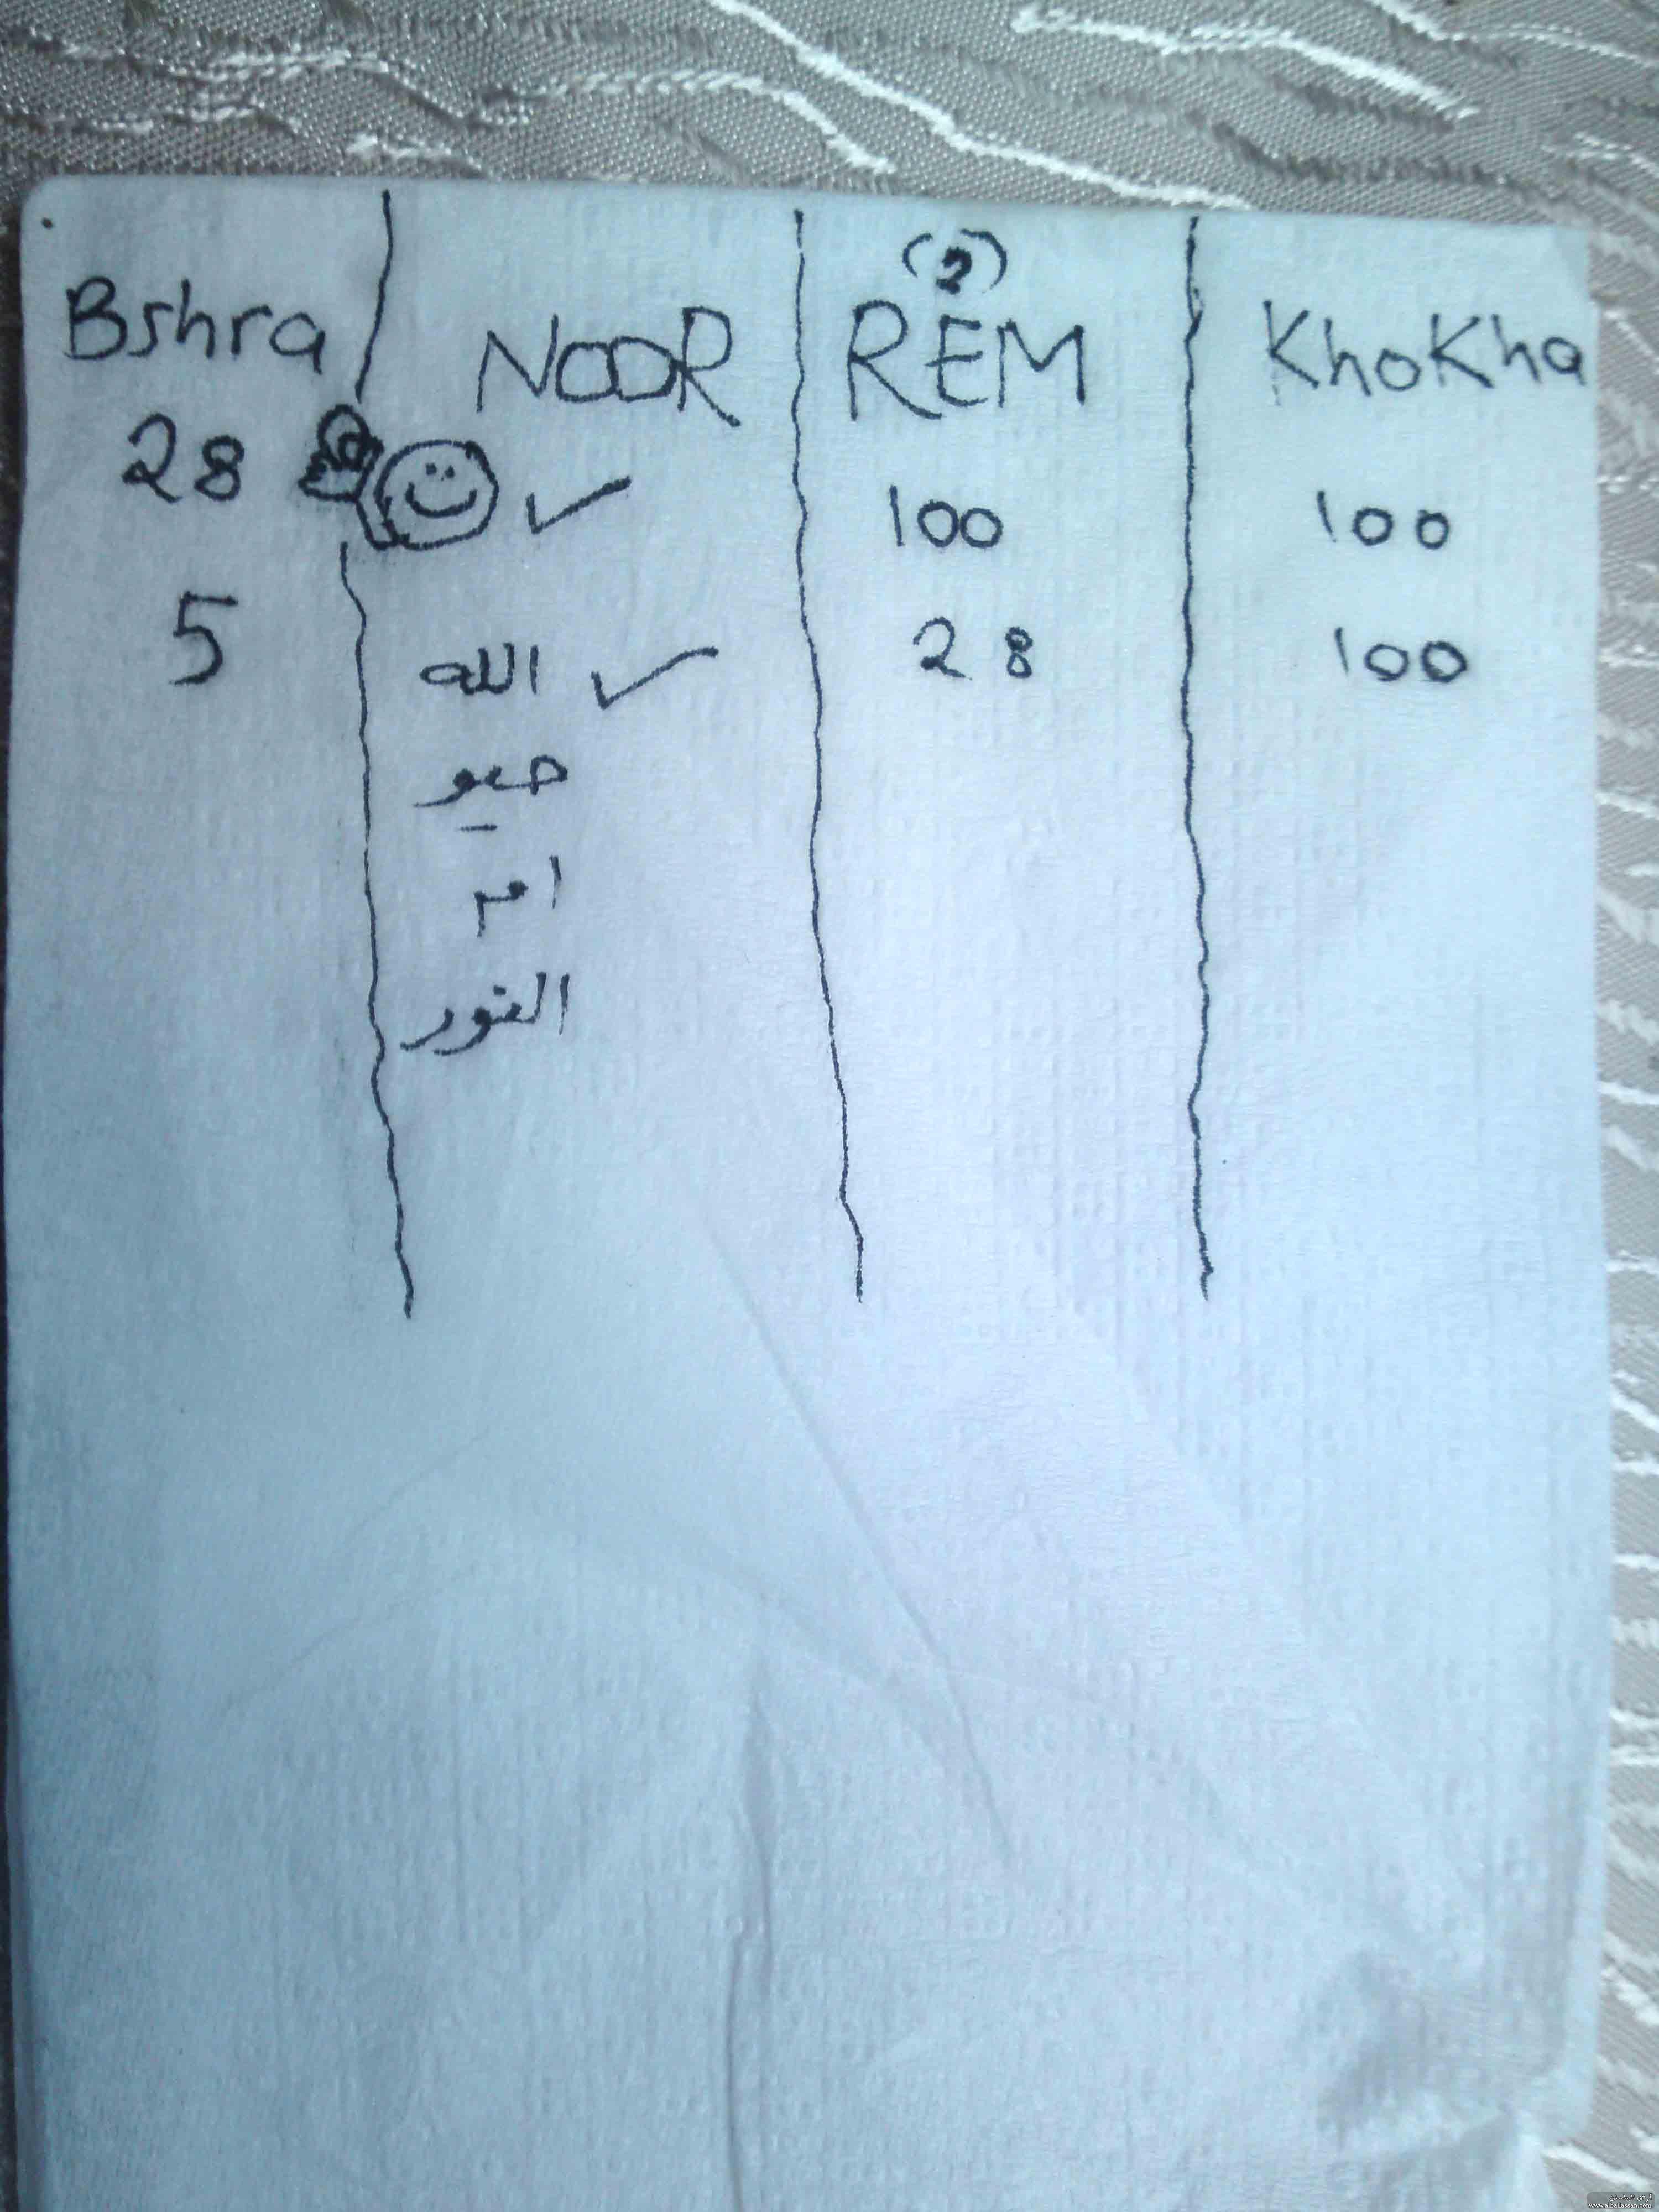 (2)
Bshra NOOR REM Khokha
28 ✓ 100 100
5 الله ✓ 28 100
ام
النور
www.albadassah.com